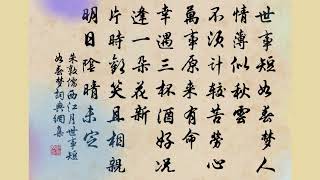 世事短如春梦人
情薄似秋雲
不須計較苦勞心
萬事原来有命
幸遇三杯酒好况
逢一朵花新
片時歡笑且相親
明日陰晴未定
朱敦儒西江月世事短
如春梦詞典網集